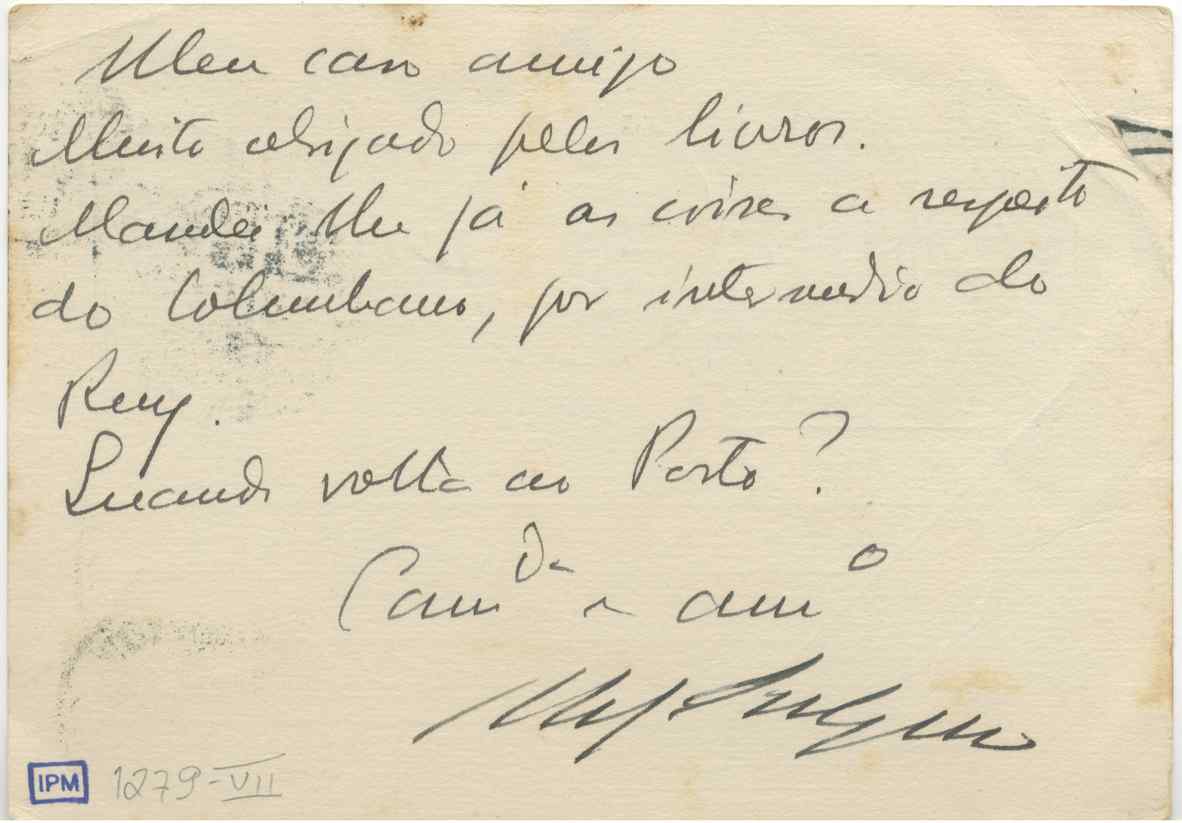 Meu caro amigo
Muito obrigado pelos livros.
Mandei lhe já as coisas a respeito
do Columbano, por intermedio do
Ruy.
Quando volta ao Porto?
Cam da e am o
IPM 1279-VII